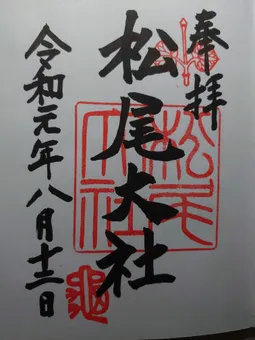 奉拝
松尾大社
松尾大社
令和元年八月十三日